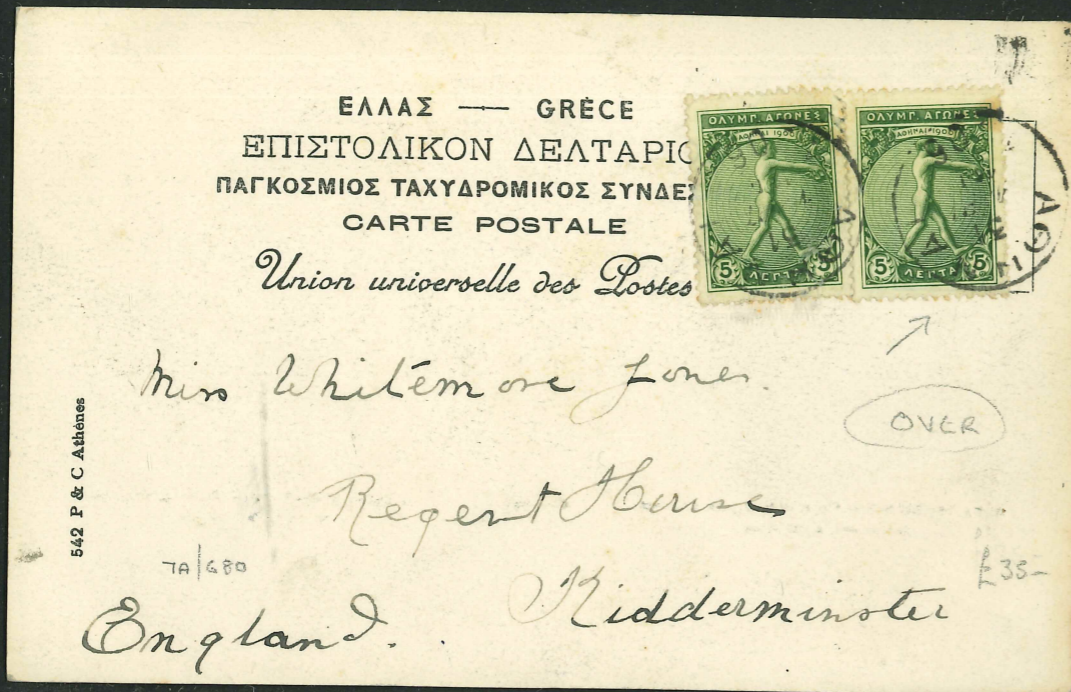 ΕΛΛΑΣ — GRÈCE
ΕΠΙΣΤΟΛΙΚΟΝ ΔΕΛΤΑΡΙΟ
ΠΑΓΚΟΣΜΙΟΣ ΤΑΧΥΔΡΟΜΙΚΟΣ ΣΥΝΔΕΣ
CARTE POSTALE
Union universelle des Postes
ΟΛΥΜΠ. ΑΓΩΝΕΣ
ΑΘΗΝΑΙ 1906
5 ΛΕΠΤΑ 5
ΟΛΥΜΠ. ΑΓΩΝΕΣ
ΑΘΗΝΑΙ 1906
5 ΛΕΠΤΑ 5
Miss Whitemore Jones.
OVER
Regent House
Kidderminster
England.
542 P & C Athènes
7A/680
£35-